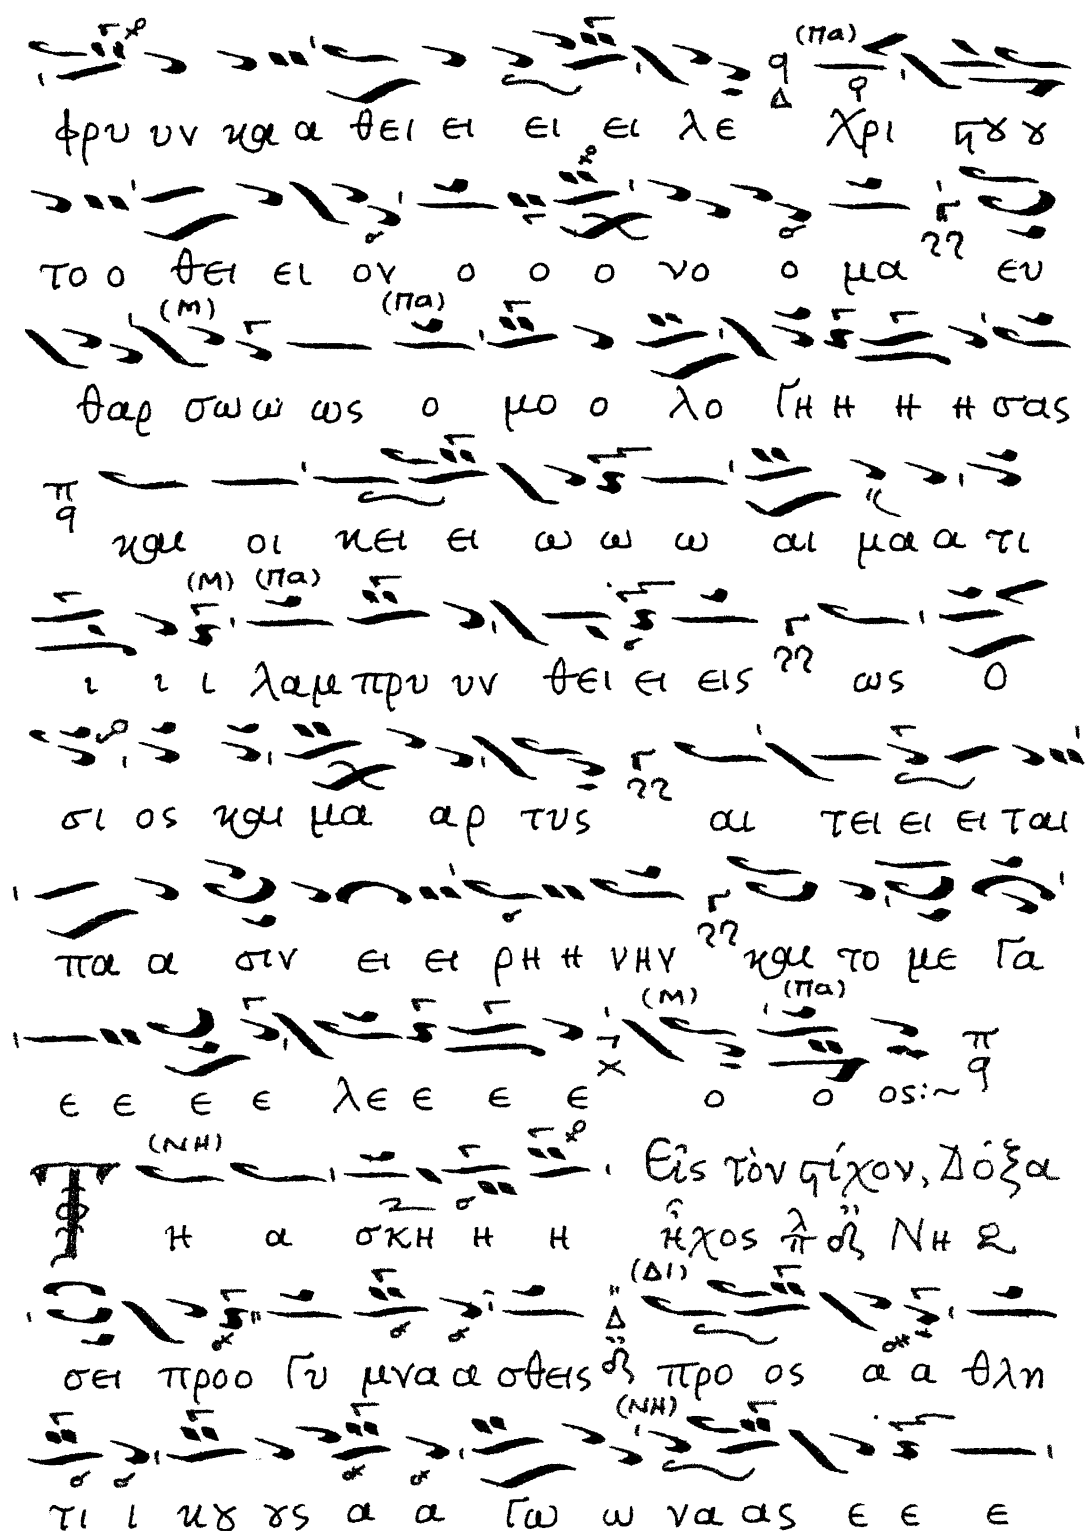 (Πα)
φρυ υν και α θει ει ει ει λε Χρι ϛȣ ȣ
το ο θει ει ον ο ο ο νο ο μα ευ
(Μ) (Πα)
θαρ σω ω ως ο μο ο λο Γη η η η σας
και οι κει ει ω ω ω αι μα α τι
(Μ) (Πα)
ι ι ι λαμ πρυ υν θει ει εις ως Ο
σι ος και μα αρ τυς αι τει ει ει ται
πα α σιν ει ει ρη η νην και το με Γα
(Μ) (Πα)
ε ε ε ε λε ε ε ε ο ο ος:~
(ΝΗ) Εἰς τὸν ϛίχον, Δόξα
Τη α σκη η η ἦχος λ π Νη
(ΔΙ)
σει προ ο Γυ μνα α σθεις προ ος α α θλη
(ΝΗ)
τι ι κȣ ȣς α α Γω ω να ας ε ε ε